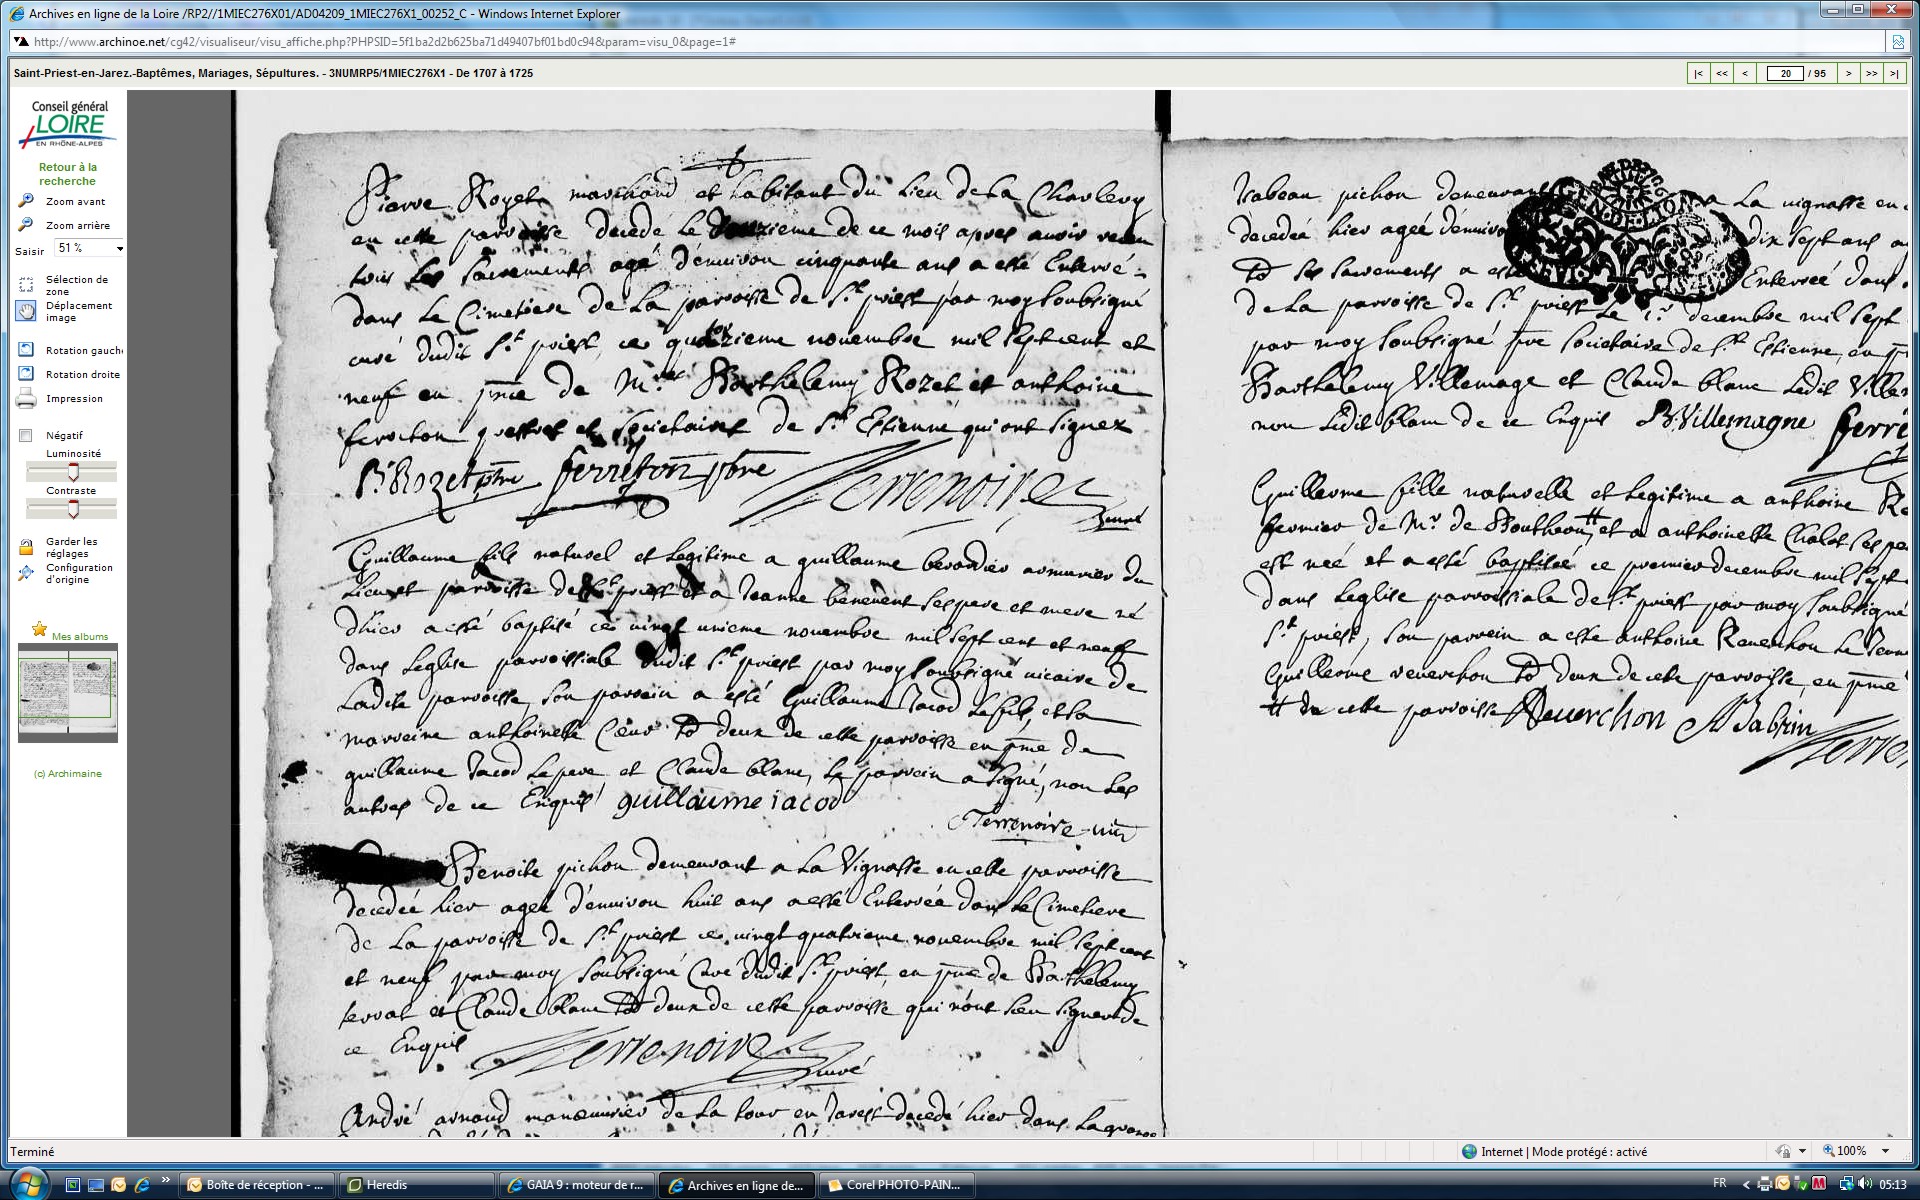 Archives en ligne de la Loire /RP2//1MIEC276X01/AD04209_1MIEC276X1_00252_C - Windows Internet Explorer
http://www.archinoe.net/cg42/visualiseur/visu_affiche.php?PHPSID=5f1ba2d2b625ba71d49407bf01bd0c94&param=visu_0&page=1#
Saint-Priest-en-Jarez.-Baptêmes, Mariages, Sépultures. - 3NUMRP5/1MIEC276X1 - De 1707 à 1725
|< << < 20 / 95 > >> >|
Conseil général
LOIRE
EN RHÔNE-ALPES
Retour à la
recherche
Zoom avant
Zoom arrière
Saisir 51 %
Sélection de
zone
Déplacement
image
Rotation gauche
Rotation droite
Impression
Négatif
Luminosité
Contraste
Garder les
réglages
Configuration
d'origine
Mes albums
(c) Archimaine
Pierre Royet marchand et habitant du lieu de la Charlery
en cette parroisse decedé le de ce mois apres avoir receu
tous les sacrements agé d'environ cinquante ans a esté Enterré
dans le Cimetiere de la parroisse de St priest par moy soubsigné
curé dudit St priest, ce quatorzieme novembre mil sept cent et
neuf en pnce de Mres Barthelemy Rozet et anthoine
ferreton prestres et societaires de St Estienne qui ont signez
B. Rozet pbre ferreton pbre Terrenoire
curé
Guillaume fils naturel et legitime a guillaume berardier armurier du
lieu et parroisse de St priest et a Jeanne benevent ses pere et mere né
d'hier a esté baptisé ce vingt unieme novembre mil sept cent et neuf
dans l'eglise parroissiale dudit St priest par moy soubsigné vicaire de
ladite parroisse, son parrein a esté Guillaume Jacod le fils, et la
marreine anthoinette to deux de cette parroisse en pnce de
guillaume Jacod le pere, et Claude blanc, le parrein a signé, non les
autres de ce Enquis guillaume iacod
Terrenoire
Benoite pichon demeurant a la Vignasse en cette parroisse
decedée hier agée d'environ huit ans a esté Enterrée dans le Cimetiere
de la parroisse de St priest ce vingt quatrieme novembre mil sept cent
et neuf par moy soubsigné Curé dudit St priest, en pnce de Barthelemy
servat et Claude blanc to deux de cette parroisse qui n'ont sceu signer de
ce Enquis Terrenoire
curé
André arnaud manœuvrier de la tour en Jarest decedé hier dans la grange
Isabeau pichon demeurant a la vignasse en
decedée hier agée d'environ dix sept ans
to ses sacrements a esté Enterrée dans
de la parroisse de St priest le 1r decembre mil sept
par moy soubsigné pbre societaire de St Estienne, en
Barthelemy Villemage et Claude blanc ledit
non ledit blanc de ce Enquis B. Villemagne
GEN.DE.LYON
Guillerme fille naturelle et legitime a anthoine
fermier de Mr de Boutheon, # et a anthoinette Chalot ses
est née et a esté baptisée ce premier decembre mil sept
dans l'eglise parroissiale de St priest par moy soubsigné
St priest, son parrein a esté anthoine Reverchon le
Guillerme reverchon to deux de cette parroisse, en pnce
# de cette parroisse Reverchon Sabrin
Terrenoire
Terminé
Internet | Mode protégé : activé
100%
Boîte de réception - ...
Heredis
GAIA 9 : moteur de r...
Archives en ligne de...
Corel PHOTO-PAIN...
FR
05:13